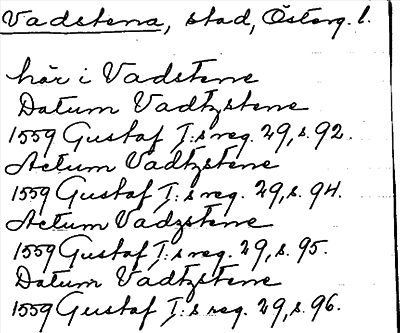 Vadstena, stad, Österg. l.
här i Vadstene
Datum Vadtzstene
1559 Gustaf I:s reg. 29, s. 92.
Actum Vadtzstene
1559 Gustaf I:s reg. 29, s. 94.
Actum Vadzstene
1559 Gustaf I:s reg. 29, s. 95.
Datum Vadtzstene
1559 Gustaf I:s reg. 29, s. 96.